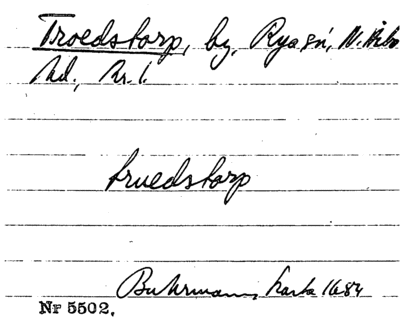 Troedstorp, by, Ryas:n, N. Åsbo
hd., Kr. l.
truedstorp
Buhrmann, karta 1684
Nr 5502.